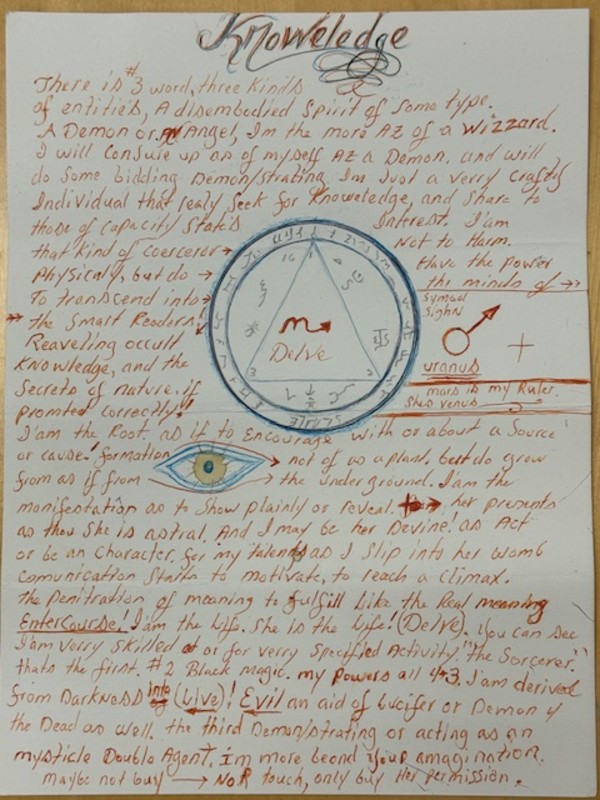 Knoweledge
There is #3 word, three kinds
of entities, A disembodied Spirit of some type.
A Demon or AN Angel, I'm the more AZ of a Wizzard.
I will Consure up as of myself AZ a Demon. and will
do some bidding Demon/strating. I'm Just a verry crafty
Individual that realy Seek for Knoweledge, and Share to
those of Capacity States Interest. I'am
that kind of Coerceror → Not to Harm.
Physicaly, but do → Have the power
To transcend into → the minds of →
the Smart Readers, Symbol
Sighn
Reaveling occult
Knoweledge, and the uranus
Secrets of nature. if mars is my Ruler.
promted correctly! Shes venus
16 1
m
Delve
3 2
I'am the Root. as if to Encourage with or about a Source
or cause! formation → not of as a plant. but do grow
from as if from → the underground. I'am the
manifestation as to Show plainly or reveal. her presents
as thou She is astral. And I may be her Devine! as Act
or be an Character. for my talents as I slip into her womb
comunication Starts to motivate, to reach a Climax.
the penitration of meaning to fulfill Like the Real meaning
Entercourse! I'am the Life. She is the Life! (Delve). you can see
I'am verry skilled at or for verry Specified Activity. "the Sorcerer."
thats the first. #2 Black magic. my powers all 4+3. I'am derived
from Darkness into (Live)! Evil an aid of Lucifer or Demon of
the Dead as well. the third Demon/strating or acting as an
mysticle Double Agent. I'm more beond your amagination.
maybe not buy → Nor touch, only buy Her permission.